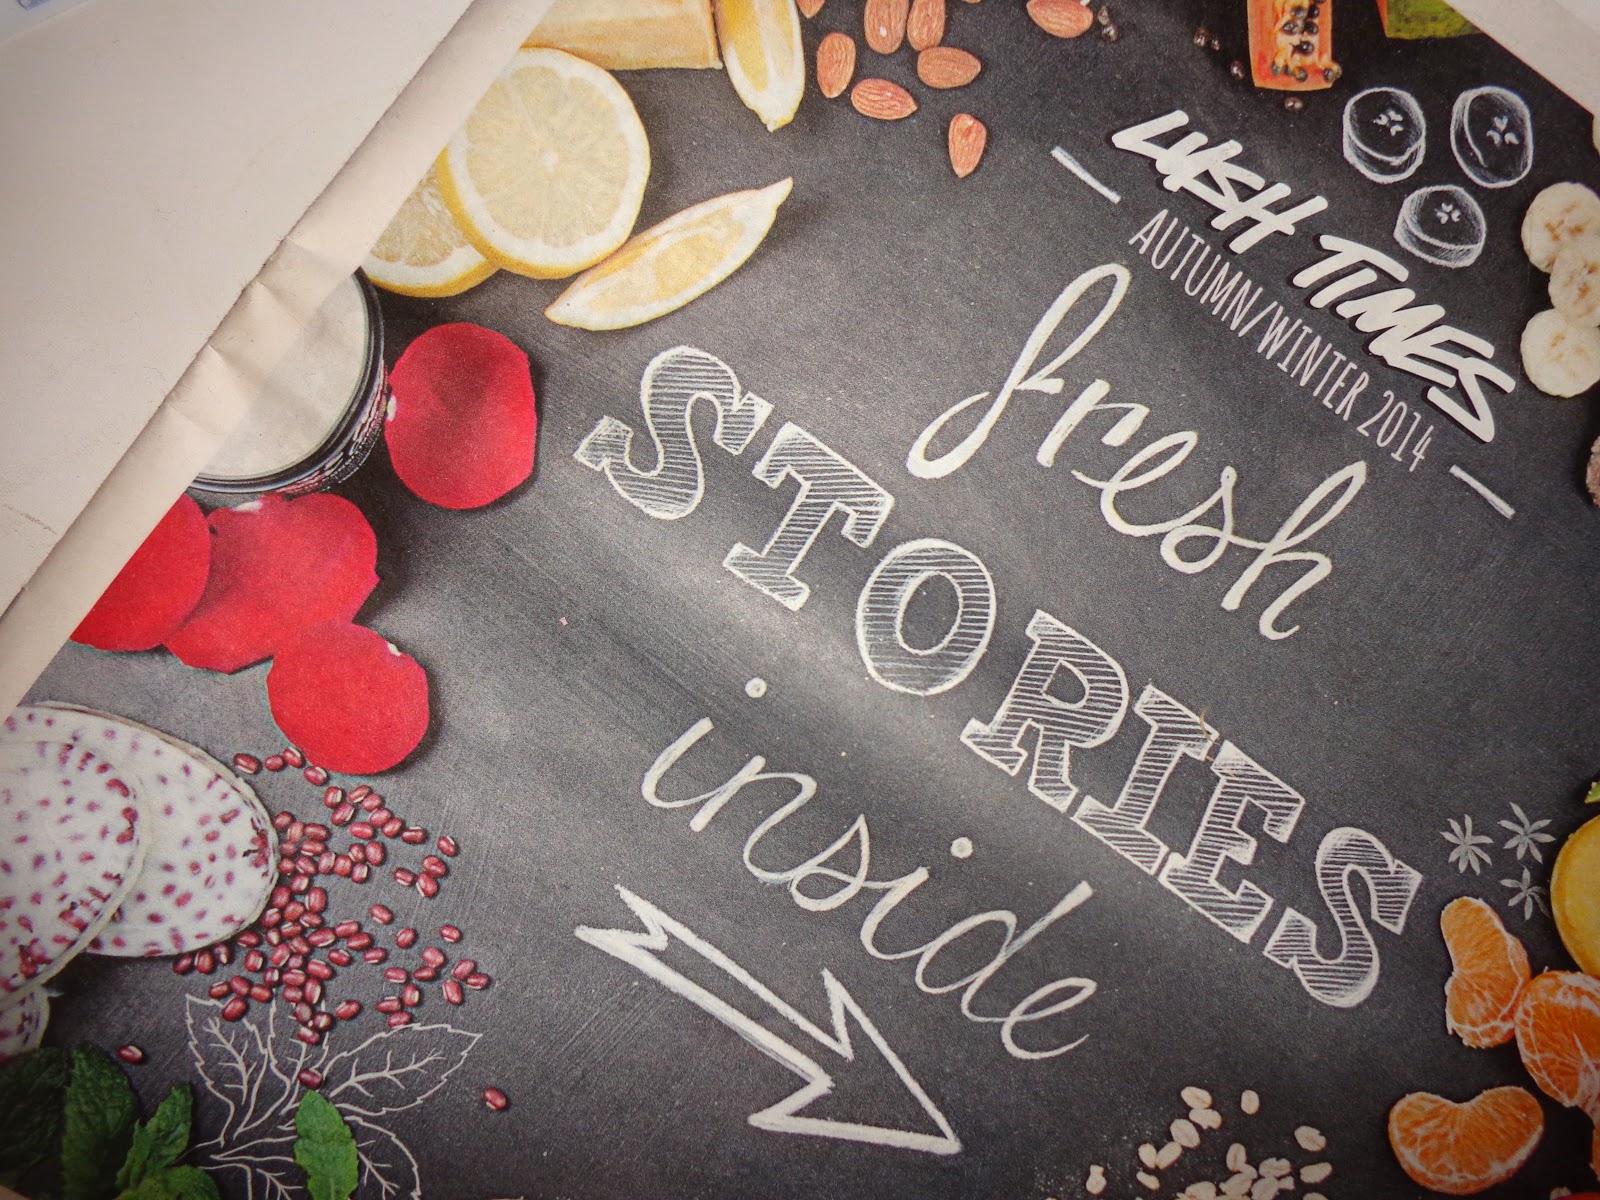 LUSH TIMES
AUTUMN/WINTER 2014
fresh
STORIES
inside